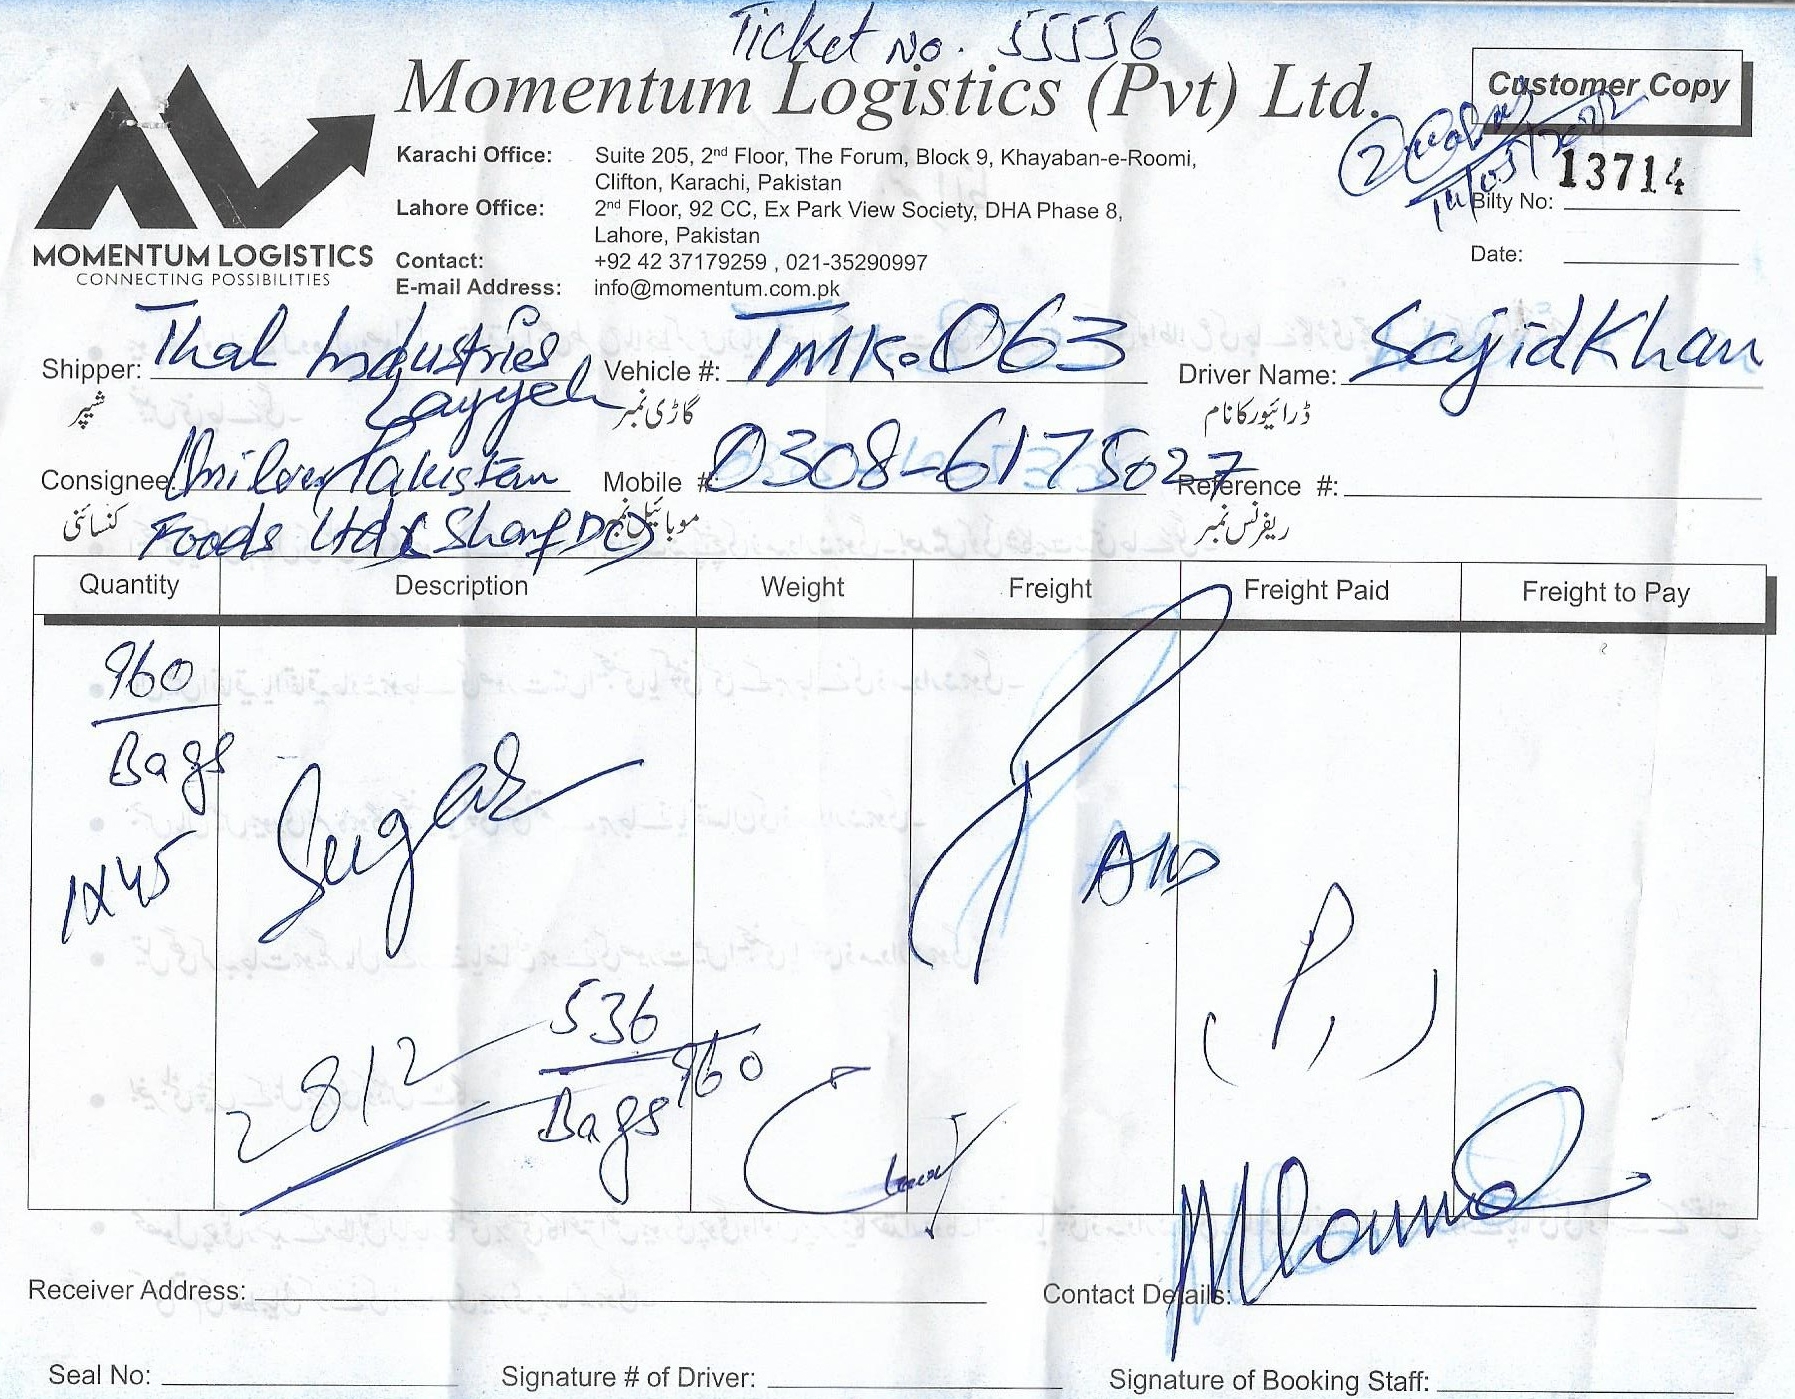 Ticket No. 55556
Momentum Logistics (Pvt) Ltd.
Customer Copy
MOMENTUM LOGISTICS
CONNECTING POSSIBILITIES
Karachi Office: Suite 205, 2nd Floor, The Forum, Block 9, Khayaban-e-Roomi,
Clifton, Karachi, Pakistan
Lahore Office: 2nd Floor, 92 CC, Ex Park View Society, DHA Phase 8,
Lahore, Pakistan
Contact: +92 42 37179259 , 021-35290997
E-mail Address: info@momentum.com.pk
2
13714
Bilty No:
Date:
Shipper: Thal Industries Vehicle #: TMK-063 Driver Name: Sajid Khan
Layyah
شیپر گاڑی نمبر ڈرائیور کا نام
Consignee: Pakistan Mobile # 0308-6175027 Reference #:
Foods Ltd
کنسائنی موبائیل نمبر ریفرنس نمبر
Quantity Description Weight Freight Freight Paid Freight to Pay
960
Bags
1x45
Sugar
PAID
(P.)
2812
536
Bags
960
Receiver Address: Contact Details:
Seal No: Signature # of Driver: Signature of Booking Staff: